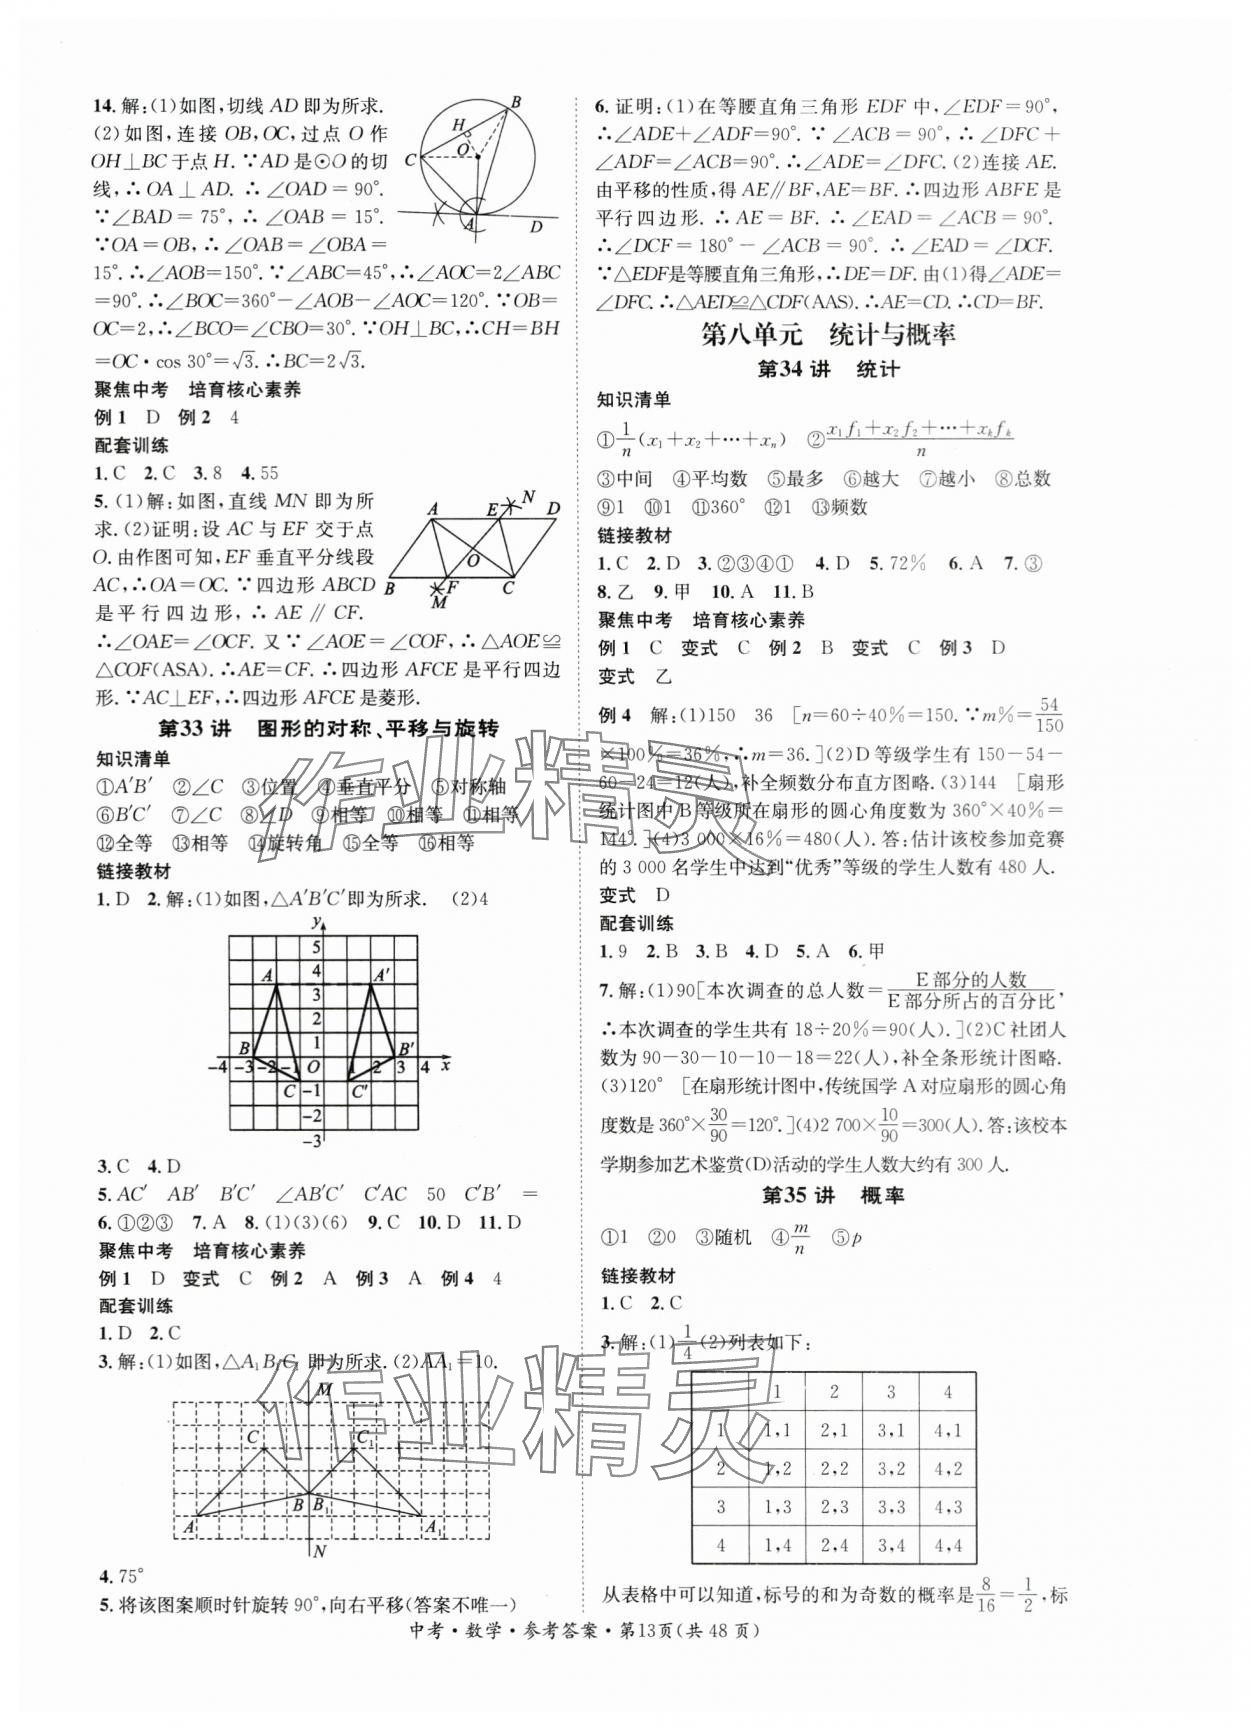 14.解:(1)如图,切线 AD 即为所求.
(2)如图,连接 OB,OC,过点 O 作
OH⊥BC于点 H.∵AD 是⊙O 的切
线,∴OA⊥AD.∴∠OAD=90°.
∵∠BAD=75°,∴∠OAB=15°.
∵OA=OB,∴∠OAB=∠OBA=
15°.∴∠AOB=150°.∵∠ABC=45°,∴∠AOC=2∠ABC
=90°.∴∠BOC=360°-∠AOB-∠AOC=120°.∵OB=
OC=2,∴∠BCO=∠CBO=30°.∵OH⊥BC,∴CH=BH
=OC·cos 30°=√3.∴BC=2√3.
B
H
O
C
A
D
聚焦中考 培育核心素养
例1 D 例2 4
配套训练
1.C 2.C 3.8 4.55
5.(1)解:如图,直线 MN 即为所
求.(2)证明:设 AC 与 EF 交于点
O.由作图可知,EF 垂直平分线段
AC,∴OA=OC.∵四边形 ABCD
是平行四边形,∴AE∥CF.
∴∠OAE=∠OCF.又∵∠AOE=∠COF,∴△AOE≌
△COF(ASA).∴AE=CF.∴四边形 AFCE 是平行四边
形.∵AC⊥EF,∴四边形 AFCE是菱形.
A E N D
O
B F C
M
第33讲 图形的对称、平移与旋转
知识清单
①A′B′ ②∠C ③位置 ④垂直平分 ⑤对称轴
⑥B′C′ ⑦∠C ⑧∠D ⑨相等 ⑩相等 ⑪相等
⑫全等 ⑬相等 ⑭旋转角 ⑮全等 ⑯相等
链接教材
1.D 2.解:(1)如图,△A′B′C′即为所求. (2)4
y
5
4
A A′
3
2
1
B B′
-4 -3 -2 -1 O 1 2 3 4 x
C C′
-1
-2
-3
3.C 4.D
5.AC′ AB′ B′C′ ∠AB′C′ C′AC 50 C′B′ =
6.①②③ 7.A 8.(1)(3)(6) 9.C 10.D 11.D
聚焦中考 培育核心素养
例1 D 变式 C 例2 A 例3 A 例4 4
配套训练
1.D 2.C
3.解:(1)如图,△A₁B₁C₁ 即为所求.(2)AA₁=10.
M
C C₁
B B₁
A A₁
N
4.75°
5.将该图案顺时针旋转 90°,向右平移(答案不唯一)
6.证明:(1)在等腰直角三角形 EDF 中,∠EDF=90°,
∴∠ADE+∠ADF=90°.∵∠ACB=90°,∴∠DFC+
∠ADF=∠ACB=90°.∴∠ADE=∠DFC.(2)连接 AE.
由平移的性质,得 AE∥BF,AE=BF.∴四边形 ABFE 是
平行四边形.∴AE=BF.∴∠EAD=∠ACB=90°.
∴∠DCF=180°-∠ACB=90°.∴∠EAD=∠DCF.
∵△EDF是等腰直角三角形,∴DE=DF.由(1)得∠ADE=
∠DFC.∴△AED≌△CDF(AAS).∴AE=CD.∴CD=BF.
第八单元 统计与概率
第34讲 统计
知识清单
①1/n(x₁+x₂+···+xₙ) ②(x₁f₁+x₂f₂+···+xₖfₖ)/n
③中间 ④平均数 ⑤最多 ⑥越大 ⑦越小 ⑧总数
⑨1 ⑩1 ⑪360° ⑫1 ⑬频数
链接教材
1.C 2.D 3.②③④① 4.D 5.72% 6.A 7.③
8.乙 9.甲 10.A 11.B
聚焦中考 培育核心素养
例1 C 变式 C 例2 B 变式 C 例3 D
变式 乙
例4 解:(1)150 36 [n=60÷40%=150.∵m%=54/150
×100%=36%,∴m=36.](2)D 等级学生有 150-54-
60-24=12(人),补全频数分布直方图略.(3)144 [扇形
统计图中 B 等级所在扇形的圆心角度数为 360°×40%=
144°.](4)3 000×16%=480(人).答:估计该校参加竞赛
的 3 000 名学生中达到“优秀”等级的学生人数有 480 人.
变式 D
配套训练
1.9 2.B 3.B 4.D 5.A 6.甲
7.解:(1)90[本次调查的总人数=E部分的人数/E部分所占的百分比,
∴本次调查的学生共有 18÷20%=90(人).](2)C 社团人
数为 90-30-10-10-18=22(人),补全条形统计图略.
(3)120° [在扇形统计图中,传统国学 A 对应扇形的圆心角
度数是 360°×30/90=120°.](4)2 700×10/90=300(人).答:该校本
学期参加艺术鉴赏(D)活动的学生人数大约有 300 人.
第35讲 概率
①1 ②0 ③随机 ④m/n ⑤p
链接教材
1.C 2.C
3.解:(1)1/4 (2)列表如下:
1 2 3 4
1 1,1 2,1 3,1 4,1
2 1,2 2,2 3,2 4,2
3 1,3 2,3 3,3 4,3
4 1,4 2,4 3,4 4,4
从表格中可以知道,标号的和为奇数的概率是8/16=1/2,标
中考·数学·参考答案·第13页(共 48 页)
作业精灵
作业精灵